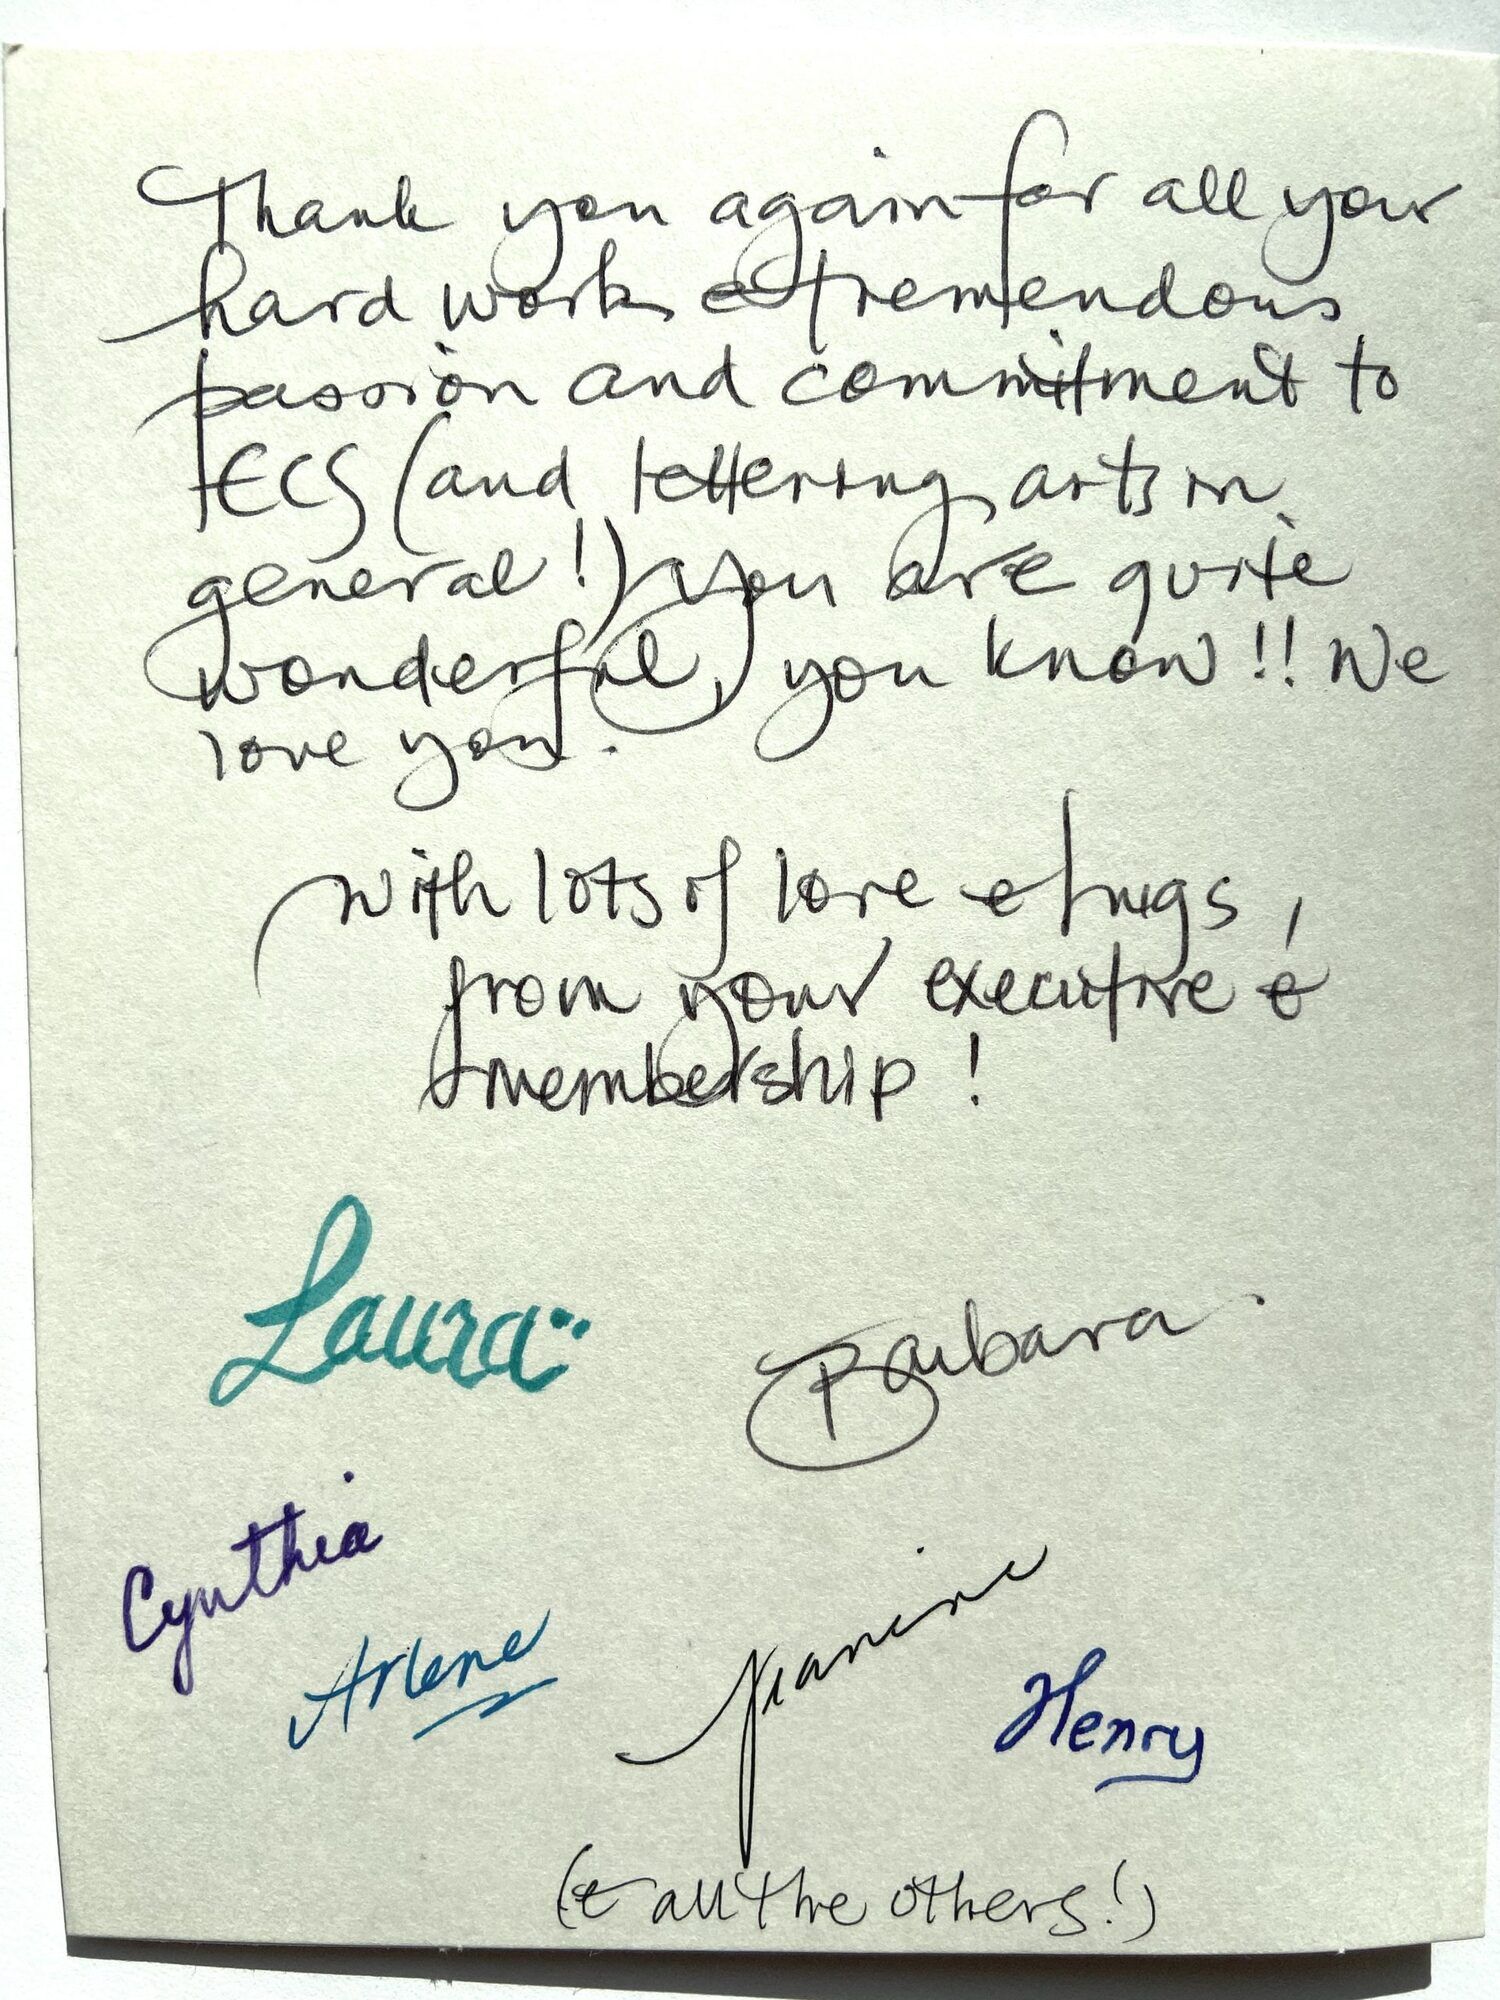 Thank you again for all your
hard work & tremendous
passion and commitment to
ECS (and lettering arts in
general!) You are quite
wonderful, you know!! We
love you.
With lots of love & hugs,
from your executive &
membership!
Laura
Barbara
Cynthia
Arlene
Jeanine
Henry
(& all the others!)